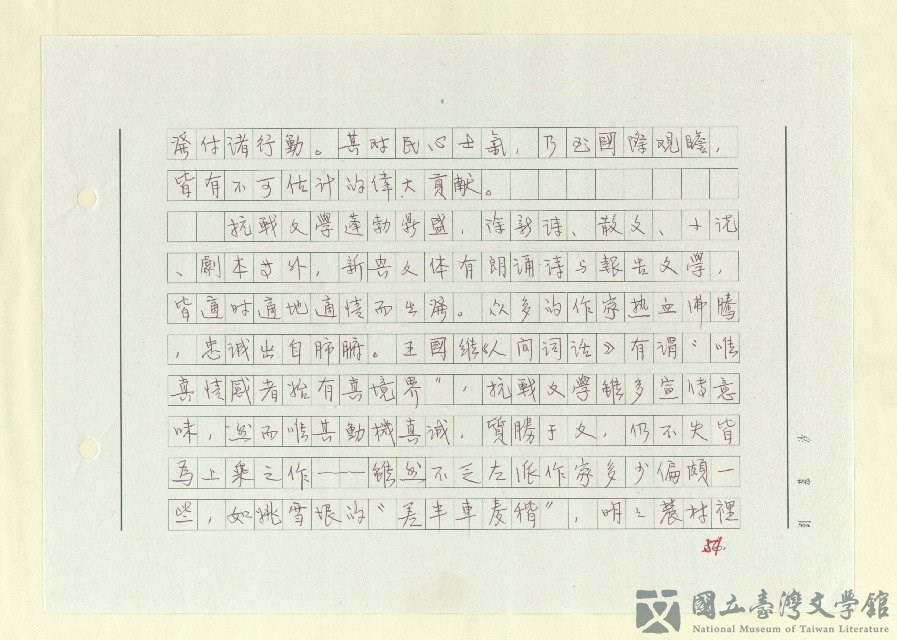 落付诸行動。其对民心士氣，乃至國際观瞻，
皆有不可估计的偉大貢献。
抗戰文學蓬勃鼎盛，除新诗、散文、小说
、劇本等外，新兴文体有朗诵诗与報告文學，
皆適时適地適情而生落。众多的作家热血沸騰
，忠诚出自肺腑。王國维《人间词话》有谓“唯
真情感者始有真境界”，抗戰文學雖多宣传意
味，然而唯其動機真诚，質勝于文，仍不失皆
為上乘之作——雖然不乏左派作家多少偏頗一
些，如姚雪垠的“差半車麦稭”，明明農村裡
54.
國立臺灣文學館
National Museum of Taiwan Literature